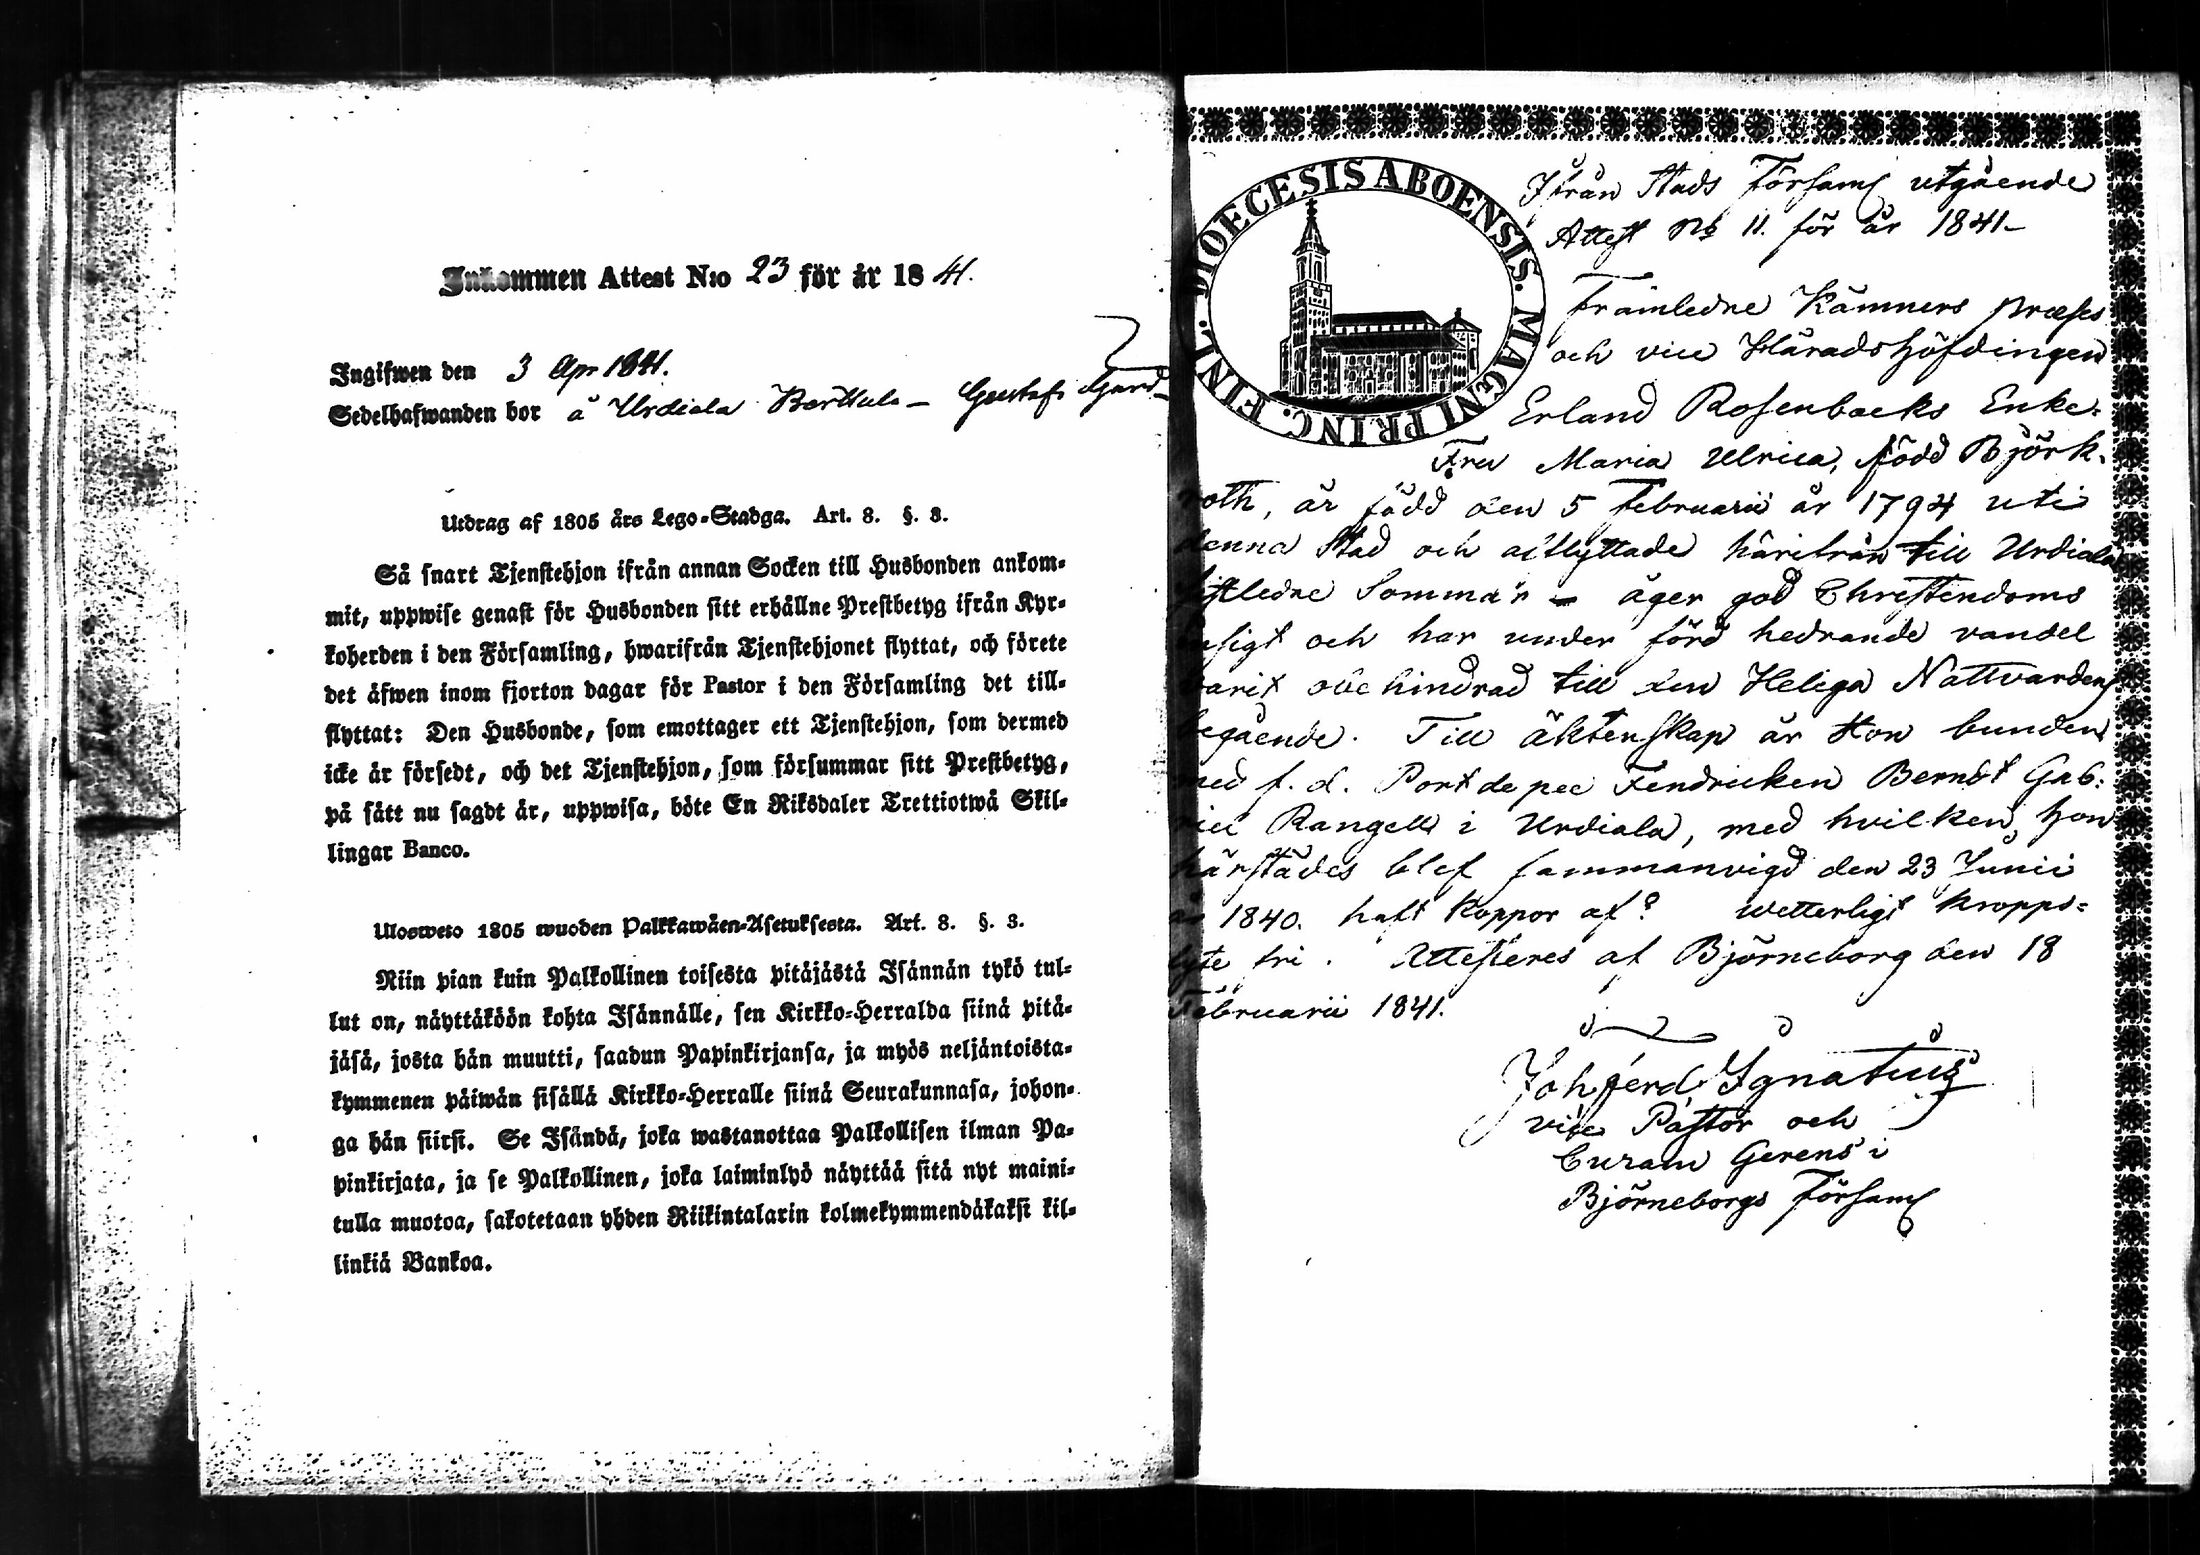 Inkommen Attest N:o 23 för år 1841.
Ingifwen den 3 Apr 1841.
Sedelhafwanden bor å Urdiala Berttula – Gustafs Gård
Utdrag af 1805 års Lego-Stadga. Art. 8. §. 3.
Så snart Tjenstehjon ifrån annan Socken till Husbonden ankom-
mit, uppwise genast för Husbonden sitt erhållne Prestbetyg ifrån Kyr-
koherden i den Församling, hwarifrån Tjenstehjonet flyttat, och förete
det äfwen inom fjorton dagar för Pastor i den Församling det till-
flyttat: Den Husbonde, som emottager ett Tjenstehjon, som dermed
icke är försedt, och det Tjenstehjon, som försummar sitt Prestbetyg,
på sätt nu sagdt är, uppwisa, böte En Riksdaler Trettiotwå Skil-
lingar Banco.
Ulosweto 1805 wuoden Palkkawäen-Asetuksesta. Art. 8. §. 3.
Niin pian kuin Palkollinen toisesta pitäjästä Isännän tykö tul-
lut on, näyttäköön kohta Isännälle, sen Kirkko-Herralda siinä pitä-
jäsä, josta hän muutti, saadun Papinkirjansa, ja myös neljäntoista-
kymmenen päiwän sisällä Kirkko-Herralle siinä Seurakunnasa, johon-
ga hän siirsi. Se Isändä, joka wastanottaa Palkollisen ilman Pa-
pinkirjata, ja se Palkollinen, joka laiminlyö näyttää sitä nyt maini-
tulla muotoa, sakotetaan yhden Riikintalarin kolmekymmendäkaksi kil-
linkiä Bankoa.
DIOECESIS ABOENSIS. MAGNI PRINC. FINL.
Ifrån Stads Församl utgående
Attest No 11. för år 1841–
Framledne Kämners Præses
och vice Häradshöfdingen
Erland Rosenbacks Enke.
Fru Maria Ulrica, född Björk-
roth, är född den 5 Februarii år 1794 uti
denna Stad och afflyttade härifrån till Urdiala
sistledne Sommar – äger god Christendoms
insigt och har under förd hedrande vandel
varit obehindrad till den Heliga Nattvardens
begående. Till äktenskap är Hon bunden
med f. d. Port de pee Fendricken Berndt Gab-
riel Rangell i Urdiala, med hvilken hon
härstädes blef sammanvigd den 23 Junii
år 1840. haft Koppor af? Wetterligt kropps-
lyte fri. Attesteres af Björneborg den 18
Februarii 1841.
Joh ferd Ignatius
vice Pastor och
Curam Gerens i
Björneborgs Församl